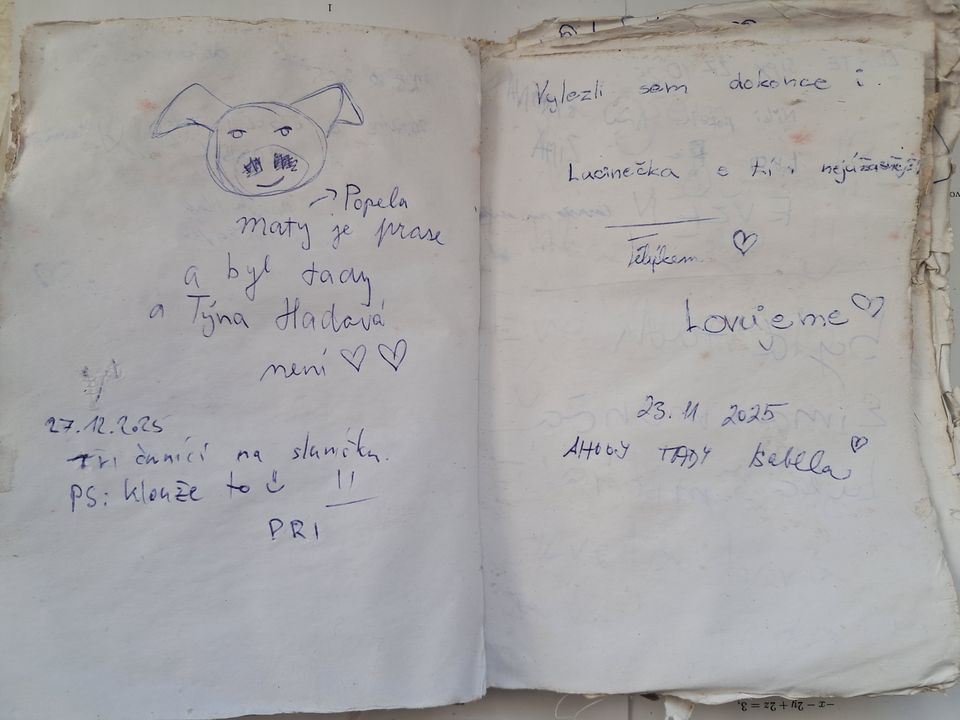 Popela
Maty je prase
a byl tady
a Týna Hadavá
není
27.12.2025
Tři čuníci na sluníčku.
PS: klouže to !!
PRI
Vylezli sem dokonce i
Lucinečka e ti nejúžasnější
Lovujeme
23.11 2025
AHOJY TADY Isabella
-x - 2y + 2z = 3,